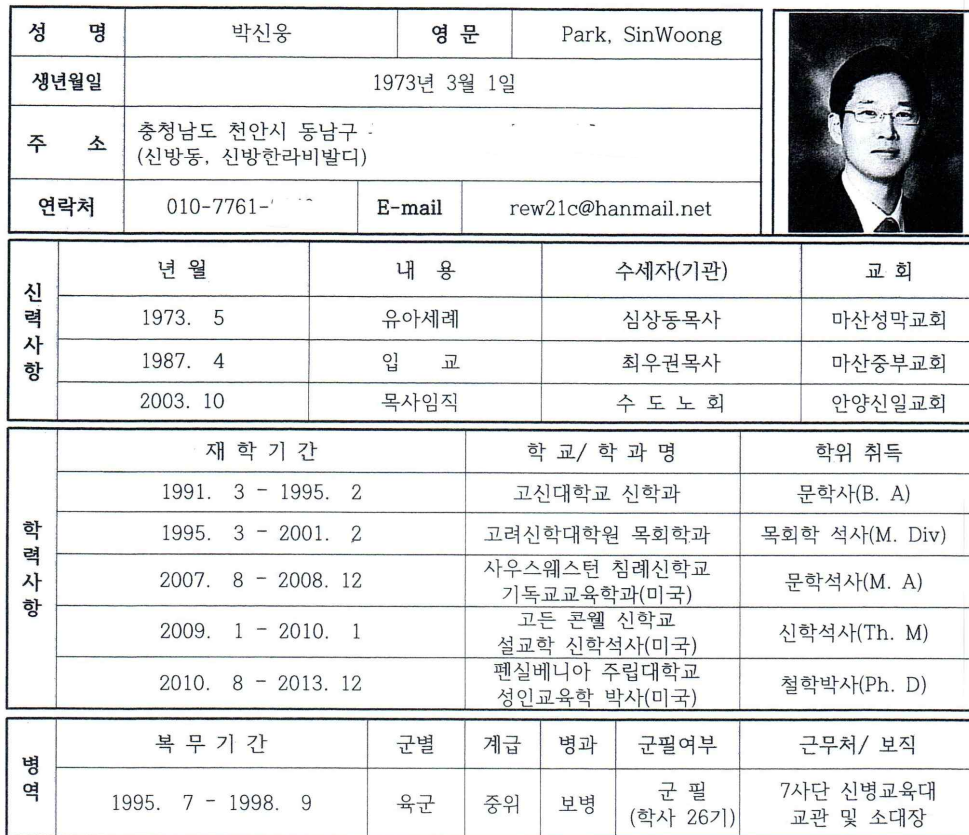 성 명 박신웅 영 문 Park, SinWoong
생년월일 1973년 3월 1일
주 소 충청남도 천안시 동남구
(신방동, 신방한라비발디)
연락처 010-7761- E-mail rew21c@hanmail.net
신력사항
년 월 내 용 수세자(기관) 교 회
1973. 5 유아세례 심상동목사 마산성막교회
1987. 4 입 교 최우권목사 마산중부교회
2003. 10 목사임직 수 도 노 회 안양신일교회
학력사항
재 학 기 간 학 교/ 학 과 명 학위 취득
1991. 3 - 1995. 2 고신대학교 신학과 문학사(B. A)
1995. 3 - 2001. 2 고려신학대학원 목회학과 목회학 석사(M. Div)
2007. 8 - 2008. 12 사우스웨스턴 침례신학교 문학석사(M. A)
기독교교육학과(미국)
2009. 1 - 2010. 1 고든 콘웰 신학교 신학석사(Th. M)
설교학 신학석사(미국)
2010. 8 - 2013. 12 펜실베니아 주립대학교 철학박사(Ph. D)
성인교육학 박사(미국)
병역
복 무 기 간 군별 계급 병과 군필여부 근무처/ 보직
1995. 7 - 1998. 9 육군 중위 보병 군 필 7사단 신병교육대
(학사 26기) 교관 및 소대장